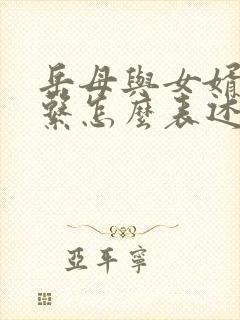 岳母與女婿
繫怎麼表述
亞平寧